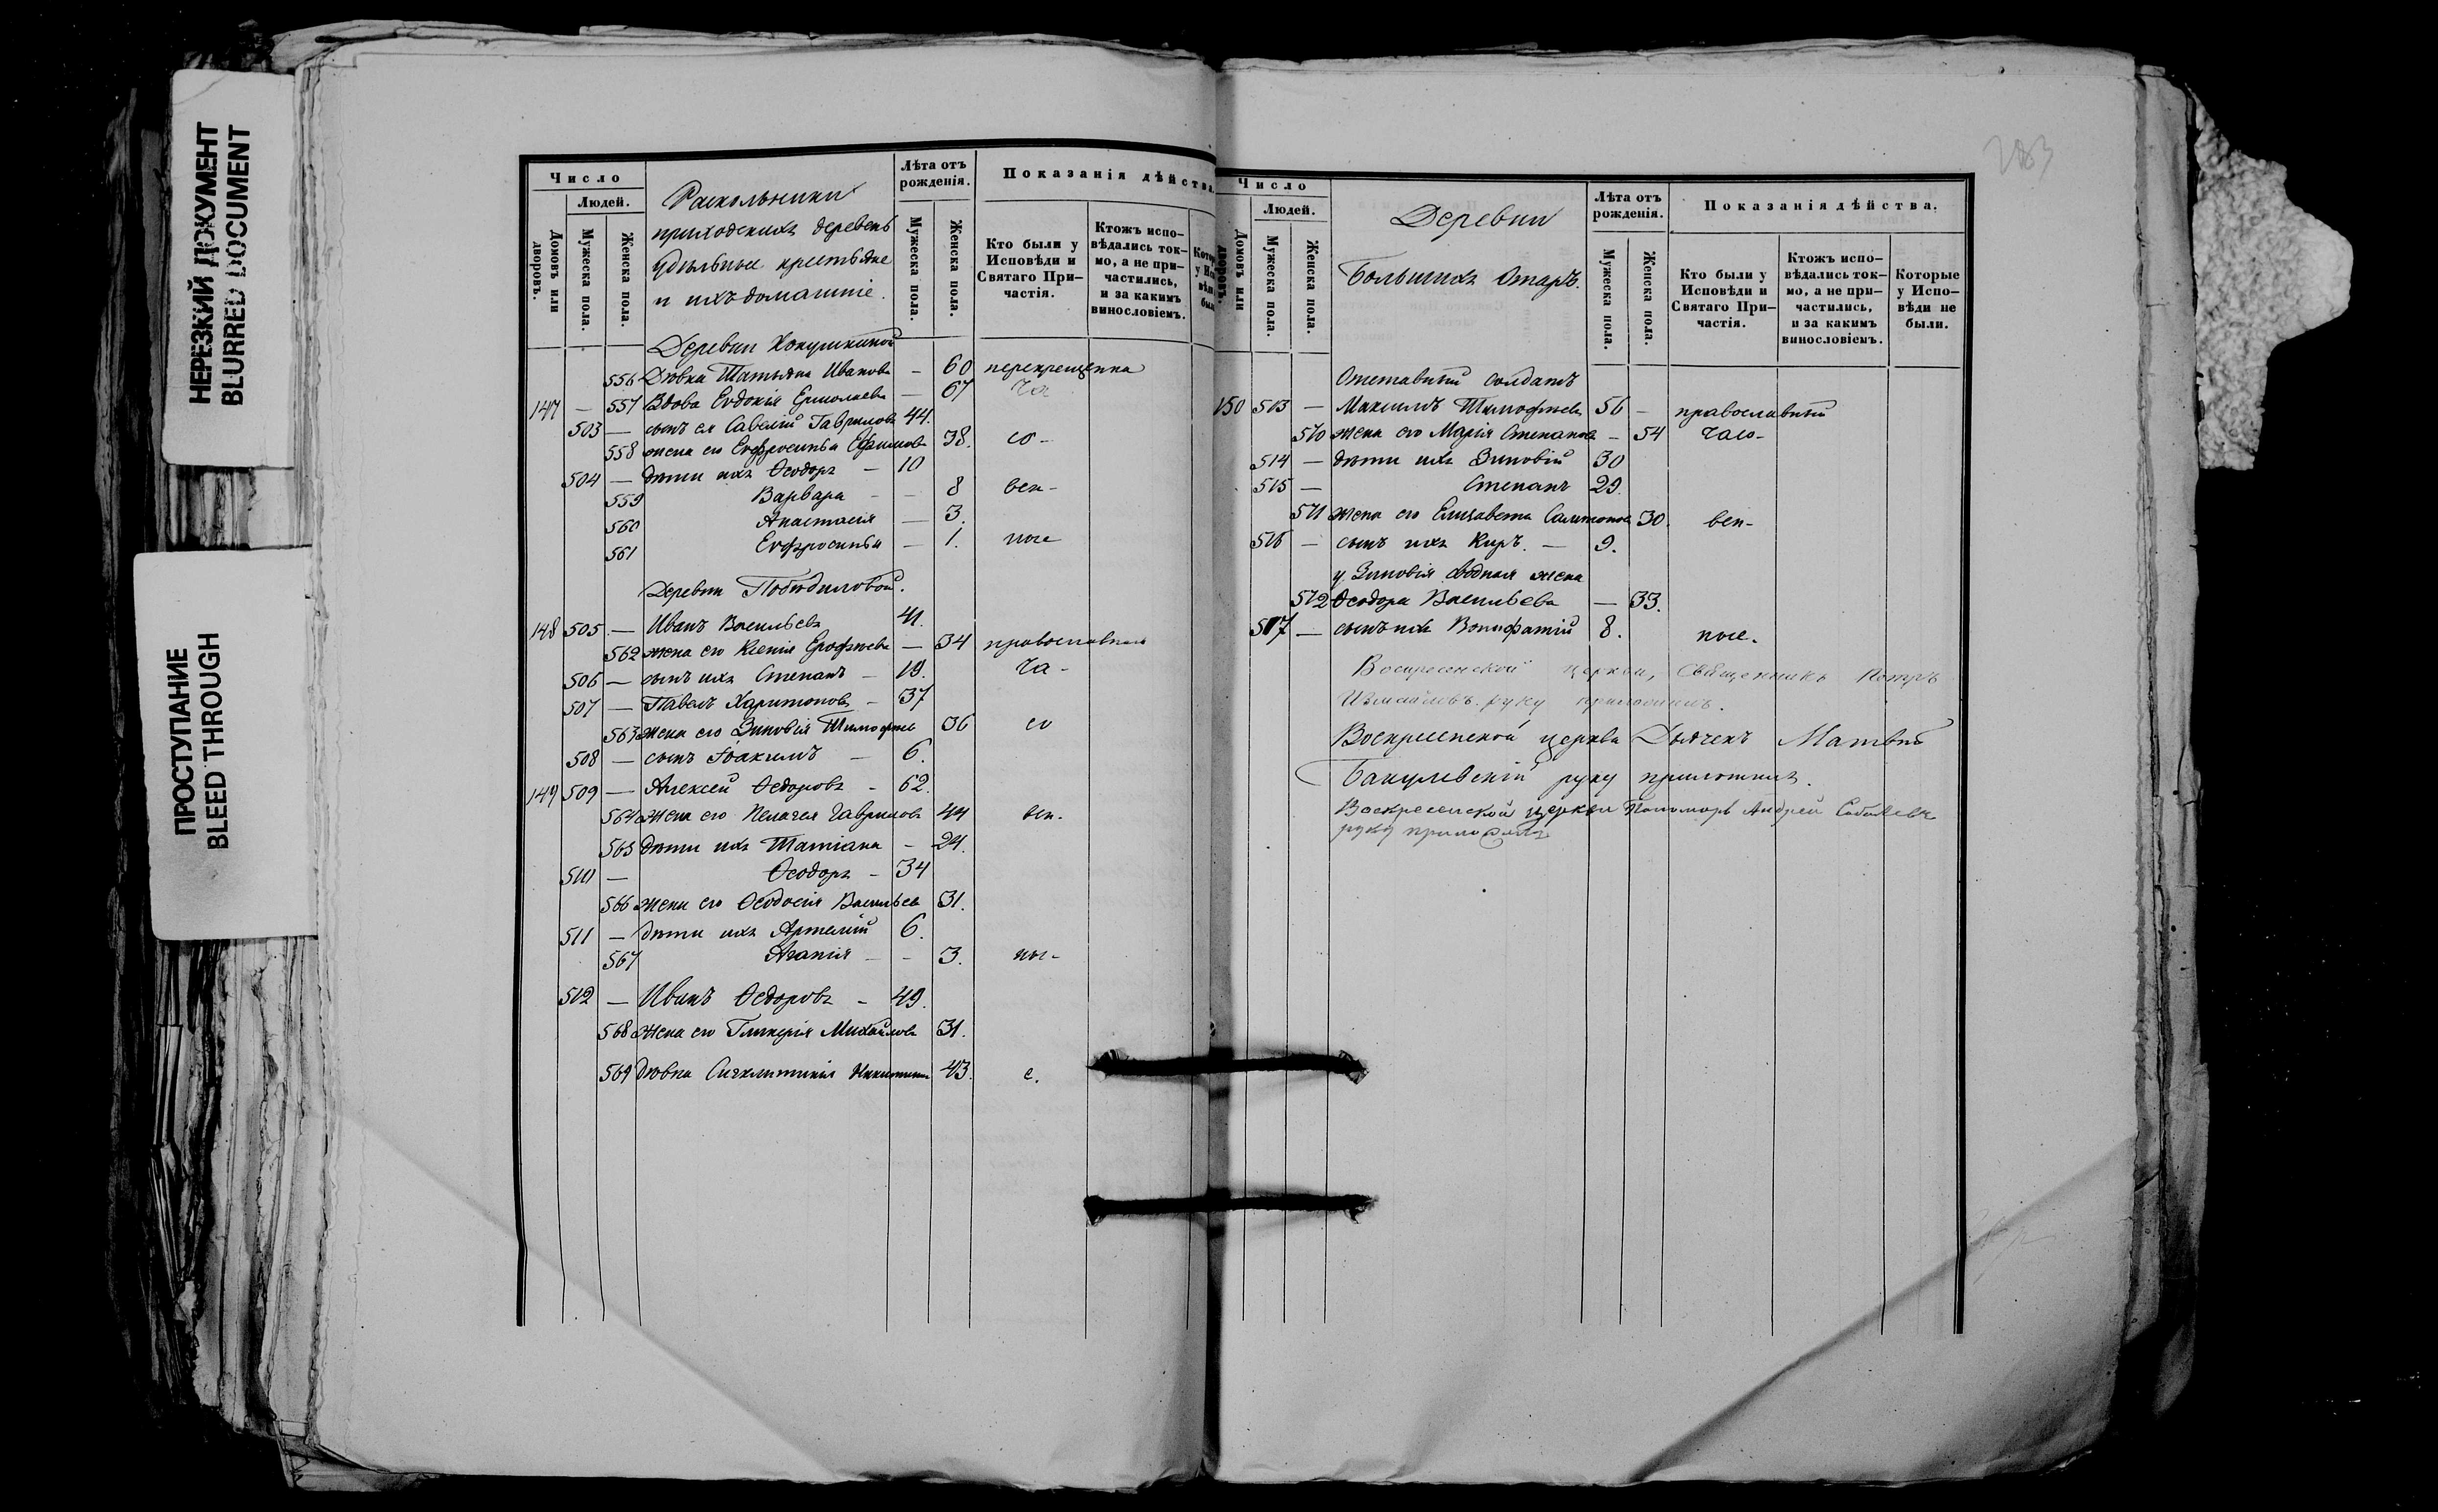 НЕРЕЗКИЙ ДОКУМЕНТ
BLURRED DOCUMENT
ПРОСТУПАНИЕ
BLEED THROUGH
Число
Людей.
Домовъ или дворовъ.
Мужеска пола.
Женска пола.
Раскольники
приходскихъ деревень
удѣльные крестьяне
и ихъ домашніе.
Лѣта отъ рожденія.
Мужеска пола.
Женска пола.
Показанія дѣйства.
Кто были у Исповѣди и Святаго Причастія.
Ктожъ исповѣдались токмо, а не причастились, и за какимъ винословіемъ.
Деревни Кокушкиной
556 Дѣвка Татьяна Иванова – 60 перекрещенка
147 – 557 Вдова Евдокія Ермолаева – 67 ча
503 – сынъ ея Савелій Гавриловъ 44.
558 жена его Евфросинья Ефимова 38. со-
504 – дѣти ихъ Ѳеодоръ – 10
559 Варвара – – 8 вен-
560 Анастасія – 3.
561 Евфросинья – 1. ные
Деревни Побѣдиловой.
148 505 – Иванъ Васильевъ 41.
562 жена его Ксенія Ерофѣева – 34 православная
506 – сынъ ихъ Степанъ – 19. ча-
507 – Павелъ Харитоновъ – 37
563 жена его Зиновія Тимофѣе 36 со
508 – сынъ Іоакимъ – 6.
149 509 – Алексей Ѳедоровъ – 62.
564 жена его Пелагея Гаврилова 44 вен.
565 дѣти ихъ Татіана – 24.
510 – Ѳеодоръ – 34
566 жена его Ѳеодосія Васильев 31.
511 – дѣти ихъ Артемій 6.
567 Агапія – – 3. ны-
512 – Иванъ Ѳедоровъ – 49.
568 жена его Гликерія Михайлова 31.
569 дѣвка Сигклитикія Никитина 43. е.
283
Число
Людей.
Домовъ или дворовъ.
Мужеска пола.
Женска пола.
Деревни
Большихъ Старъ.
Лѣта отъ рожденія.
Мужеска пола.
Женска пола.
Показанія дѣйства.
Кто были у Исповѣди и Святаго Причастія.
Ктожъ исповѣдались токмо, а не причастились, и за какимъ винословіемъ.
Которые у Исповѣди не были.
Отставный солдатъ
150 513 – Максимъ Тимофѣевъ 56 – православный
570 жена его Марія Степанова – 54 часо-
514 – дѣти ихъ Зиновій 30
515 – Степанъ 29.
571 жена его Елизавета Самсонова 30. вен-
516 – сынъ ихъ Киръ. – 9.
у Зиновія сводная жена
572 Ѳеодора Васильева – 33.
517 – сынъ ихъ Вонифатій 8. ные.
Воскресенской церкви, Священникъ Петръ
Измайловъ руку приложилъ.
Воскресенской церкви Дьячекъ Матвѣй
Бакулевскій руку приложилъ.
Воскресенской церкви Пономарь Андрей
руку приложилъ